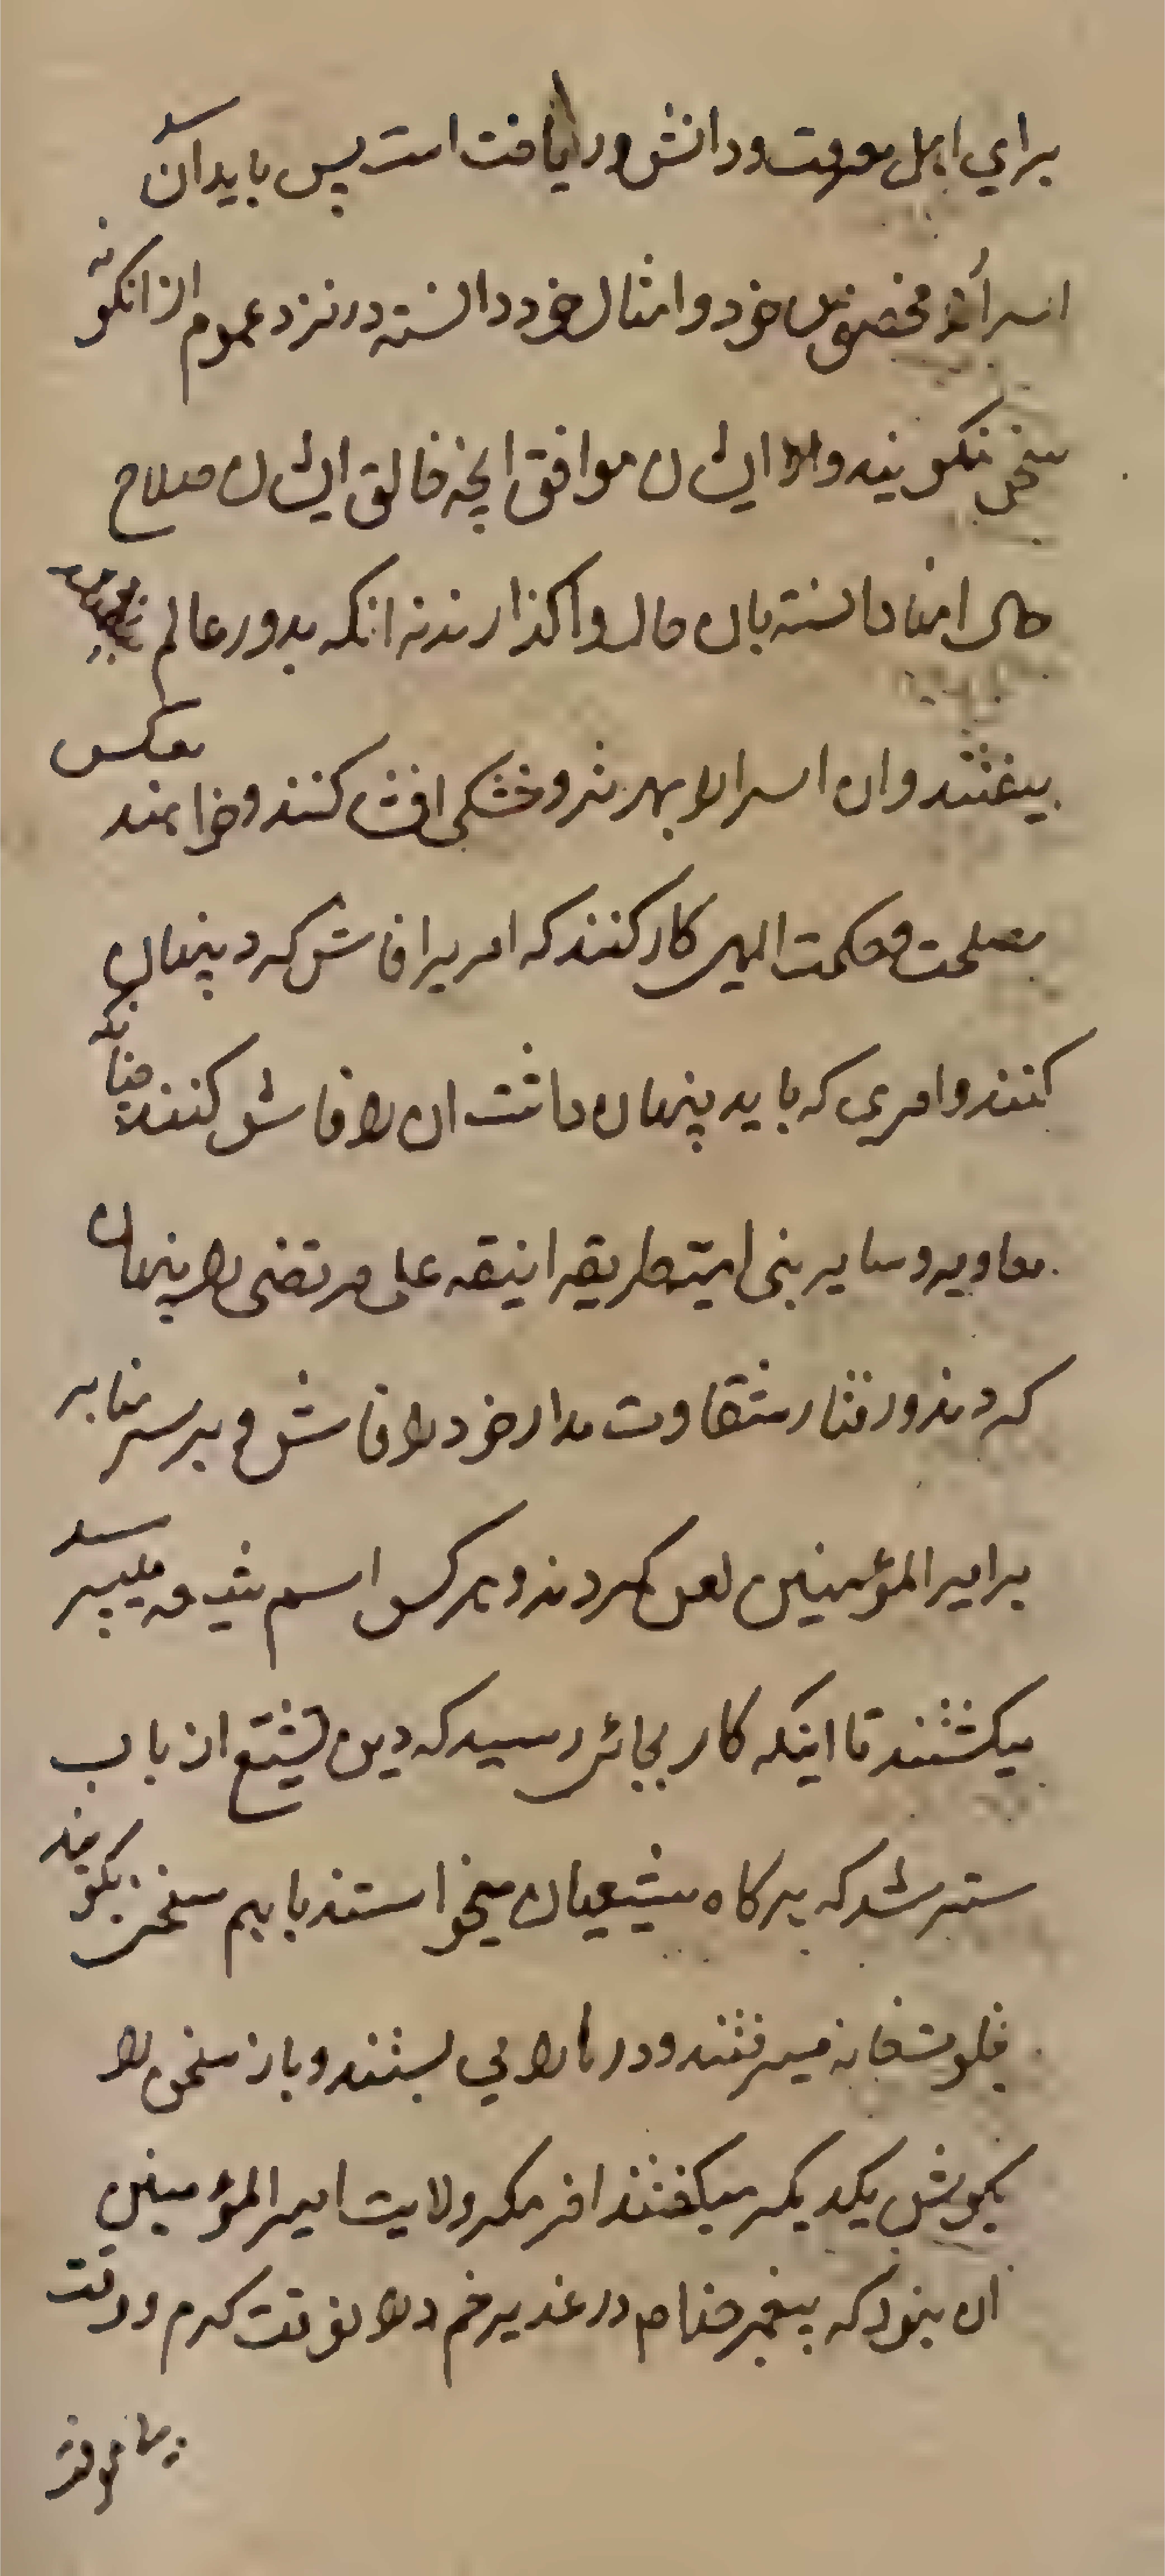 برای اهل معرفت و دانش و دریافت است پس باید آن
اسرار را مخصوص خود و امثال خود دانسته در نزد عموم از انگونه
سخن نگویند و ایشان موافق انچه خالق ایشان صلاح
حال انها دانسته بان حال واگذارند نه انکه بدور عالم
بیفتند و ان اسرار را بهر تر و خشکی افشا کنند و خواهند بعکس
مصلحت و حکمت الهی کار کنند که امریرا فاش کرد پنهان
کنند و امری که باید پنهان داشت ان را فاش کنند چنانکه
معاویه و سایر بنی امیه طریقه انیقه علی مرتضی را پنهان
کردند و رفتار شقاوت مدار خود را فاش و بر سر منابر
بر امیر المؤمنین لعن کردند و هرکس اسم شیعه میبرد
میکشتند تا اینکه کار بجائی رسید که دین تشیع از باب
ستر شد که هرگاه شیعیان میخواستند باهم سخن بگویند
بخلوتخانه میرفتند و درها را می بستند و باز سخن را
بگوش یکدیگر میگفتند اخر مگر ولایت امیر المؤمنین
ان نبود که پیغمبر خدا در غدیر خم در ان وقت گرم و دقت